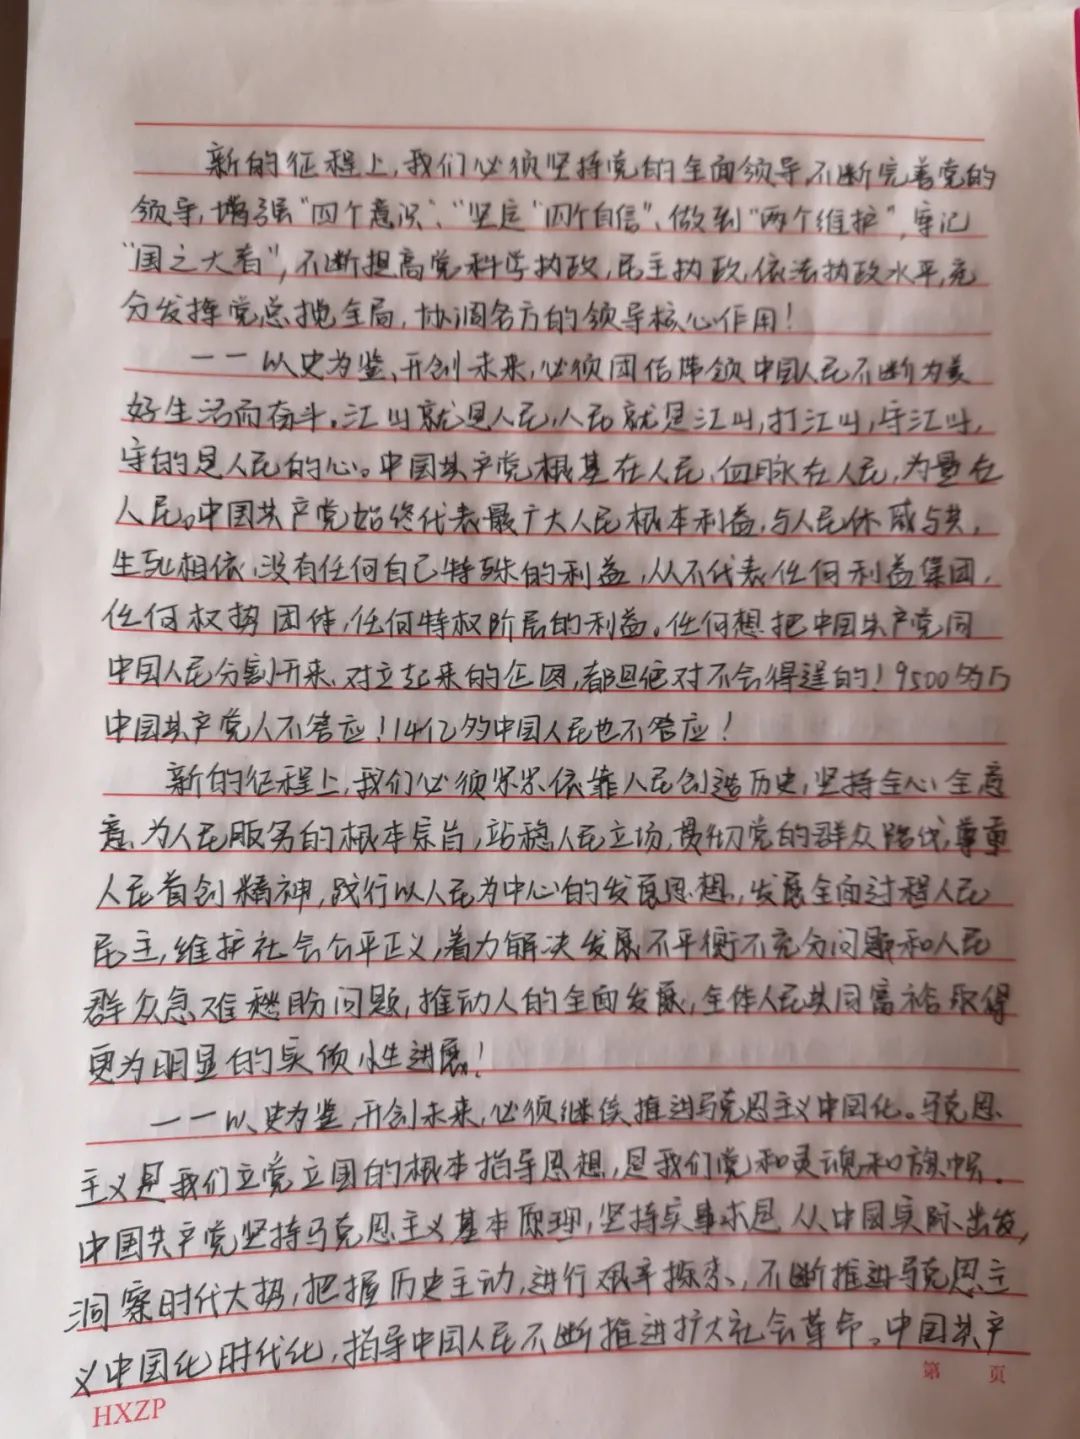 新的征程上,我们必须坚持党的全面领导,不断完善党的
领导,增强“四个意识”、“坚定“四个自信”、做到“两个维护”,牢记
“国之大者”,不断提高党科学执政,民主执政,依法执政水平,充
分发挥党总揽全局,协调各方的领导核心作用!
一一以史为鉴、开创未来,必须团结带领中国人民不断为美
好生活而奋斗。江山就是人民,人民就是江山,打江山,守江山,
守的是人民的心。中国共产党根基在人民、血脉在人民,力量在
人民。中国共产党始终代表最广大人民根本利益,与人民休戚与共,
生死相依,没有任何自己特殊的利益,从不代表任何利益集团,
任何权势团体,任何特权阶层的利益。任何想把中国共产党同
中国人民分割开来、对立起来的企图,都是绝对不会得逞的!9500多万
中国共产党人不答应!14亿多中国人民也不答应!
新的征程上,我们必须紧紧依靠人民创造历史,坚持全心全意
意为人民服务的根本宗旨,站稳人民立场,贯彻党的群众路线,尊重
人民首创精神,践行以人民为中心的发展思想,发展全面过程人民
民主,维护社会公平正义,着力解决发展不平衡不充分问题和人民
群众急难愁盼问题,推动人的全面发展,全体人民共同富裕取得
更为明显的实质性进展!
一一以史为鉴,开创未来,必须继续推进马克思主义中国化。马克思
主义是我们立党立国的根本指导思想,是我们党和灵魂和旗帜。
中国共产党坚持马克思主义基本原理,坚持实事求是,从中国实际出发,
洞察时代大势,把握历史主动,进行艰辛探索,不断推进马克思主
义中国化时代化,指导中国人民不断推进扩大社会革命。中国共产
第 页
HXZP